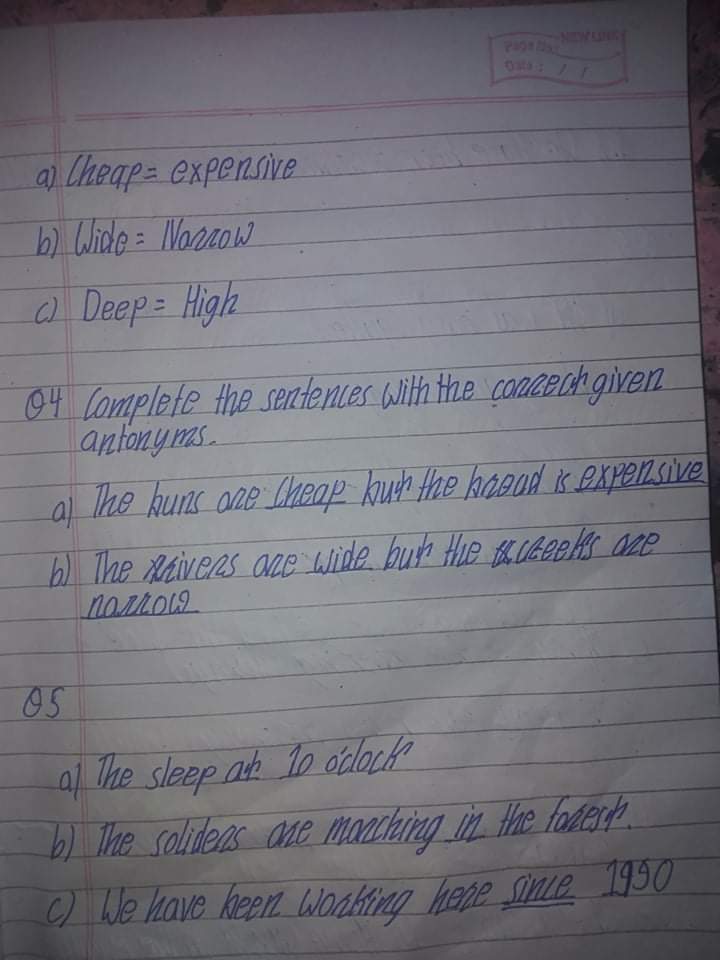 Page No.:
Date: / /
a) Cheap = expensive
b) Wide = Narrow
c) Deep = High
Q4 Complete the sentences with the correct given
antonyms.
a) The buns are cheap but the bread is expensive
b) The rivers are wide but the creeks are
narrow
Q5
a) The sleep at 10 o'clock
b) The soliders are marching in the forest.
c) We have been working here since 1990